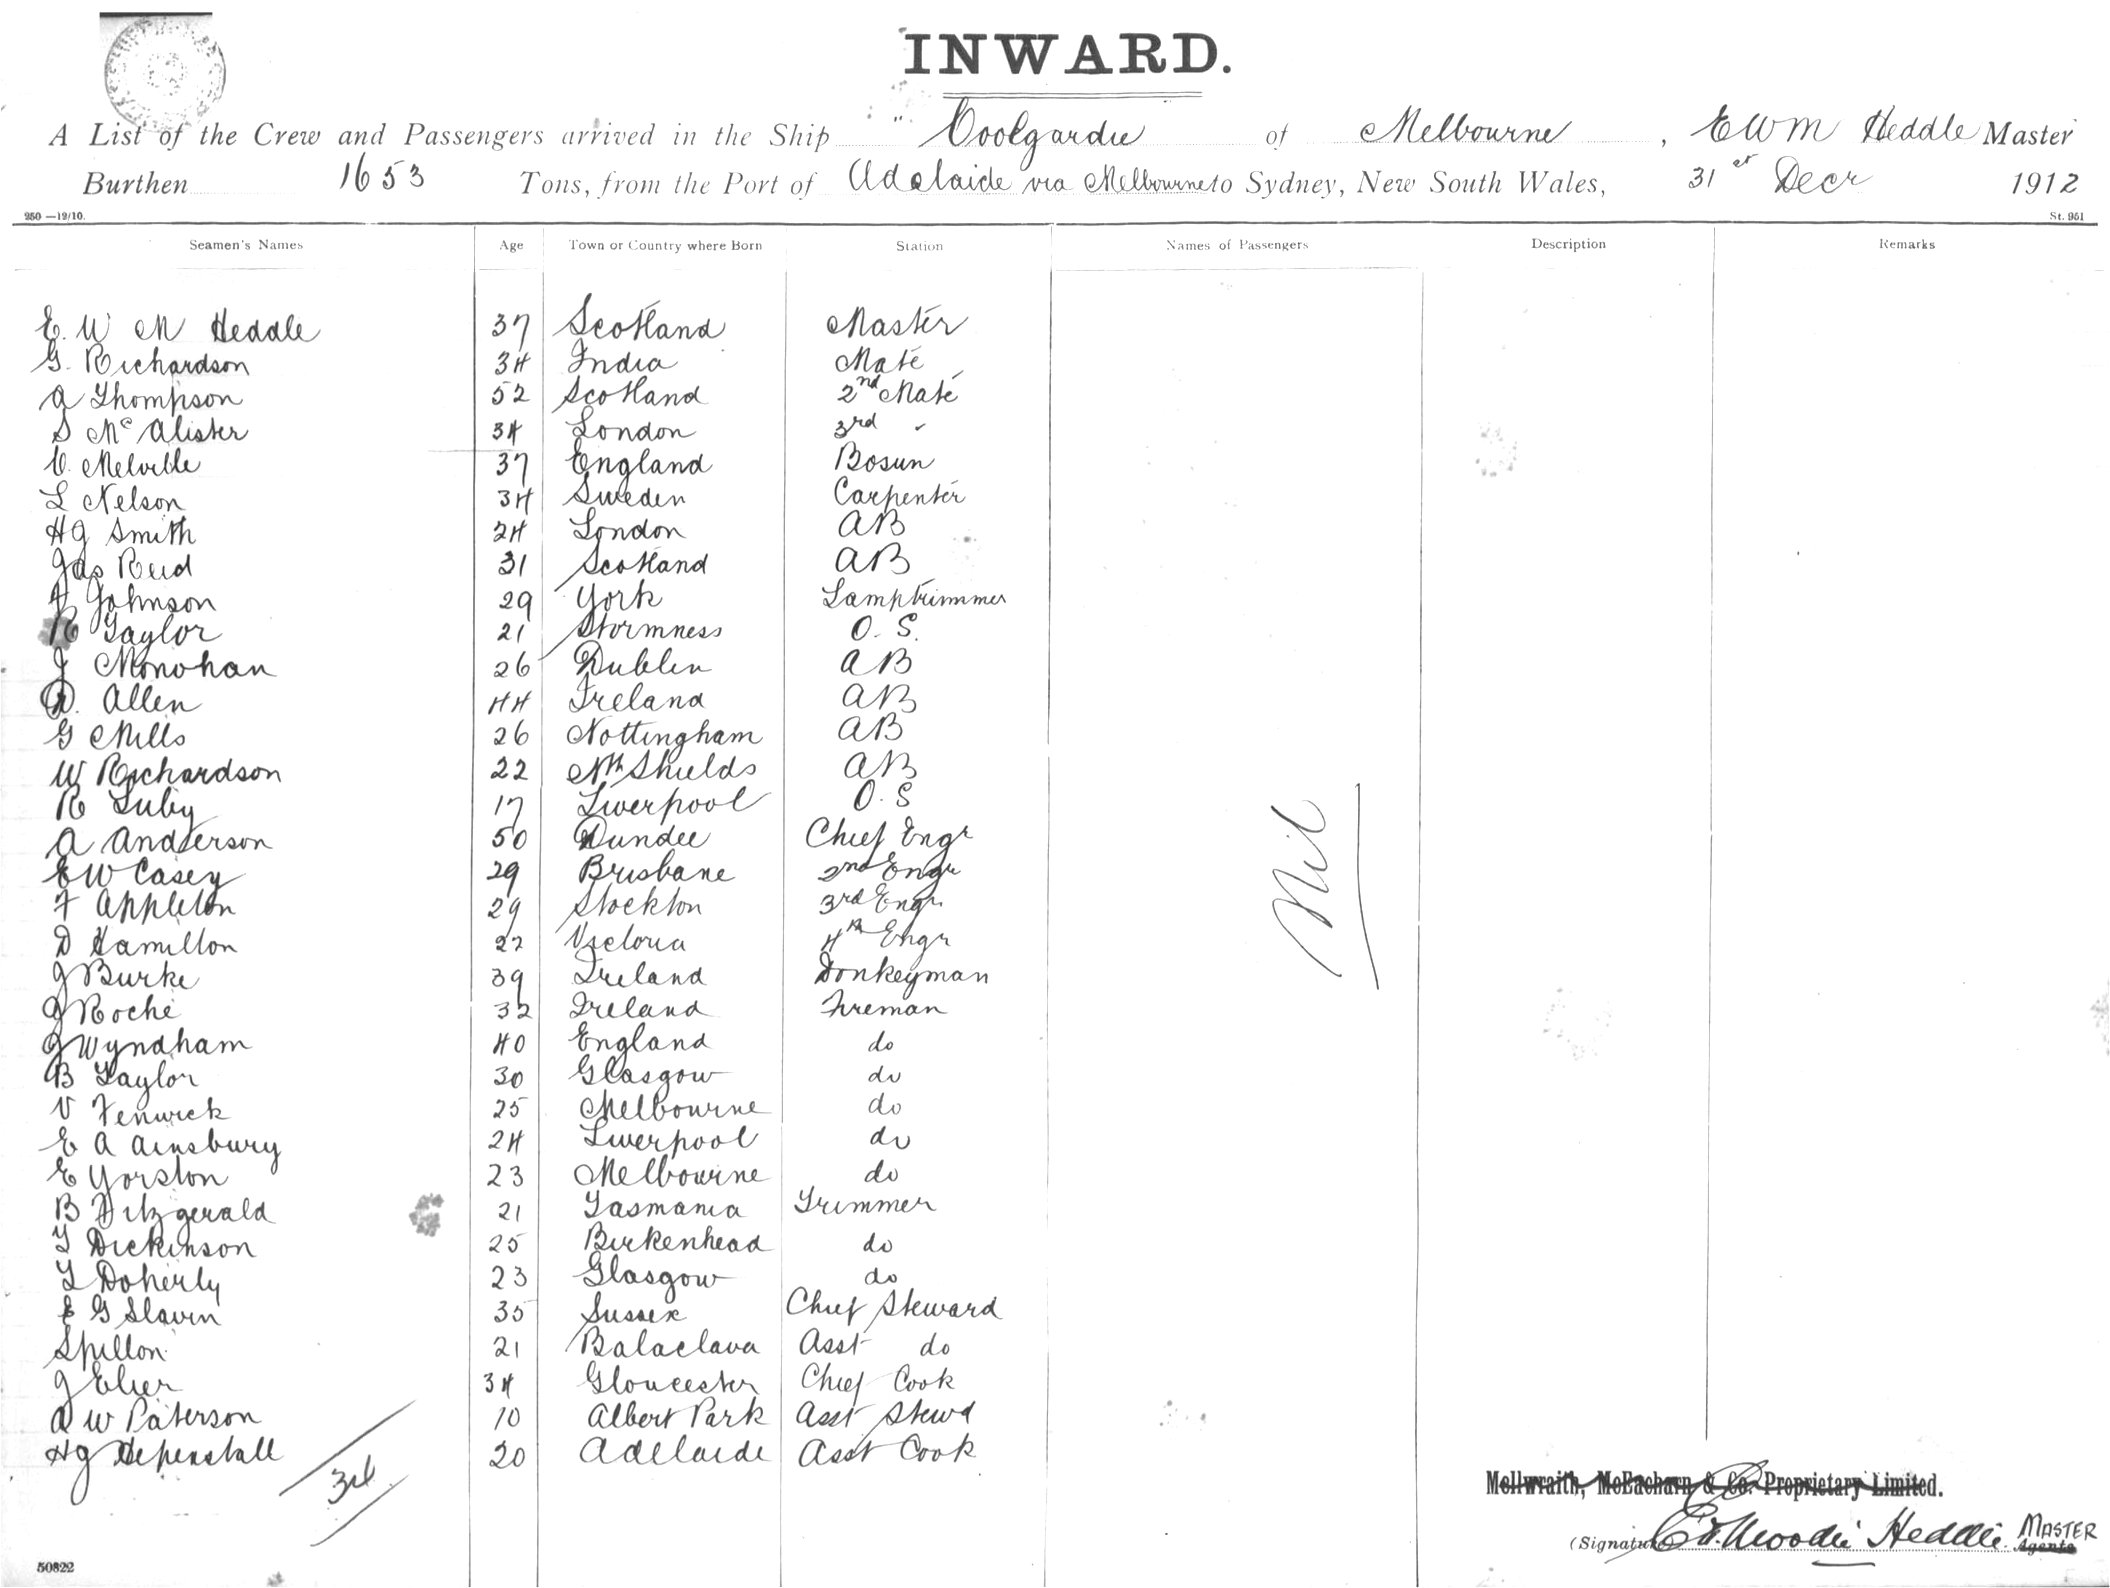 INWARD.
A List of the Crew and Passengers arrived in the Ship "Coolgardie of Melbourne, EWM Heddle Master
Burthen 1653 Tons, from the Port of Adelaide via Melbourne to Sydney, New South Wales, 31st Decr 1912
250 —12/10. St. 951
Seamen's Names Age Town or Country where Born Station Names of Passengers Description Remarks
E. W M Heddle 37 Scotland Master
G. Richardson 34 India Mate
A Thompson 52 Scotland 2nd Mate
S McAlister 34 London 3rd "
C. Melville 37 England Bosun
L Nelson 34 Sweden Carpenter
HG Smith 24 London AB
Jas Reid 31 Scotland AB
A Johnson 29 York Lamptrimmer
R Taylor 21 Stormness O. S.
J Monohan 26 Dublin AB
D. Allen 44 Ireland AB
G Mills 26 Nottingham AB
W Richardson 22 Nth Shields AB
R Luby 17 Liverpool O. S
A Anderson 50 Dundee Chief Engr
EW Casey 29 Brisbane 2nd Engr
F Appleton 29 Stockton 3rd Engr
D Hamilton 22 Victoria 4th Engr
J Burke 39 Ireland Donkeyman
J Roche 32 Ireland Fireman
J Wyndham 40 England do
B Taylor 30 Glasgow do
V Fenwick 25 Melbourne do
E A Ainsbury 24 Liverpool do
E Yorston 23 Melbourne do
B Fitzgerald 21 Tasmania Trimmer
T Dickinson 25 Birkenhead do
T Doherty 23 Glasgow do
E G Slavin 35 Sussex Chief Steward
Spillon 21 Balaclava Asst do
J Elier 34 Gloucester Chief Cook
A W Paterson 10 Albert Park Asst Stewd
HG Hepenstall 20 Adelaide Asst Cook
34
Nil
McIlwraith, McEacharn & Co. Proprietary Limited.
(Signature) E.W. Moodie Heddle MASTER
Agents
50822